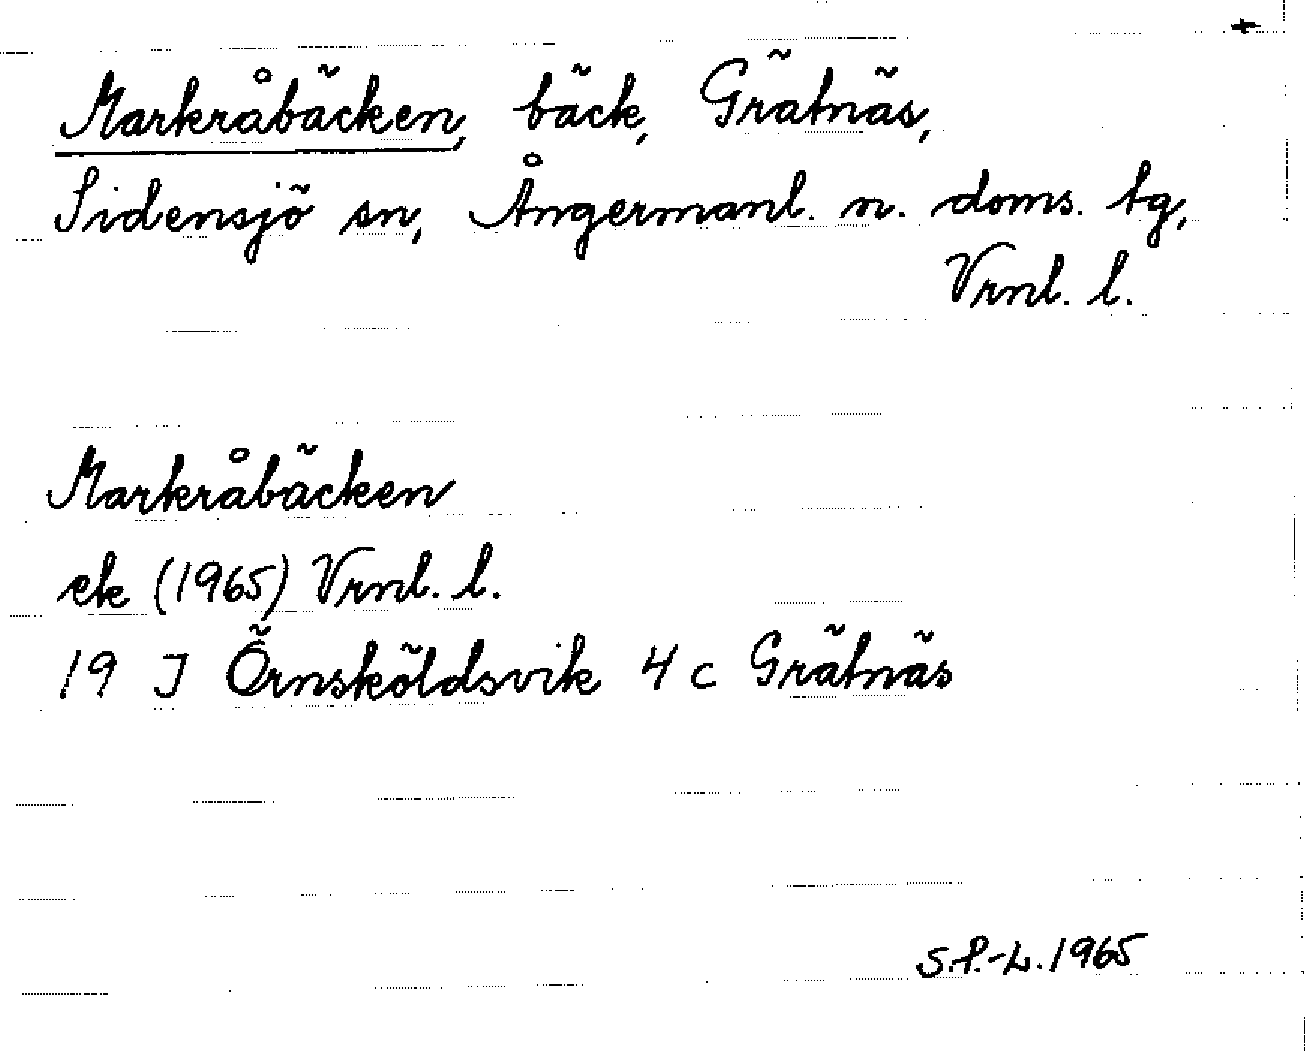 +
Markråbäcken, bäck, Grätnäs,
Sidensjö sn, Ångermanl. n. doms. tg,
Vrnl. l.
Markråbäcken
ek (1965) Vrnl. l.
19 J Örnsköldsvik 4 c Grätnäs
S.P.-L. 1965